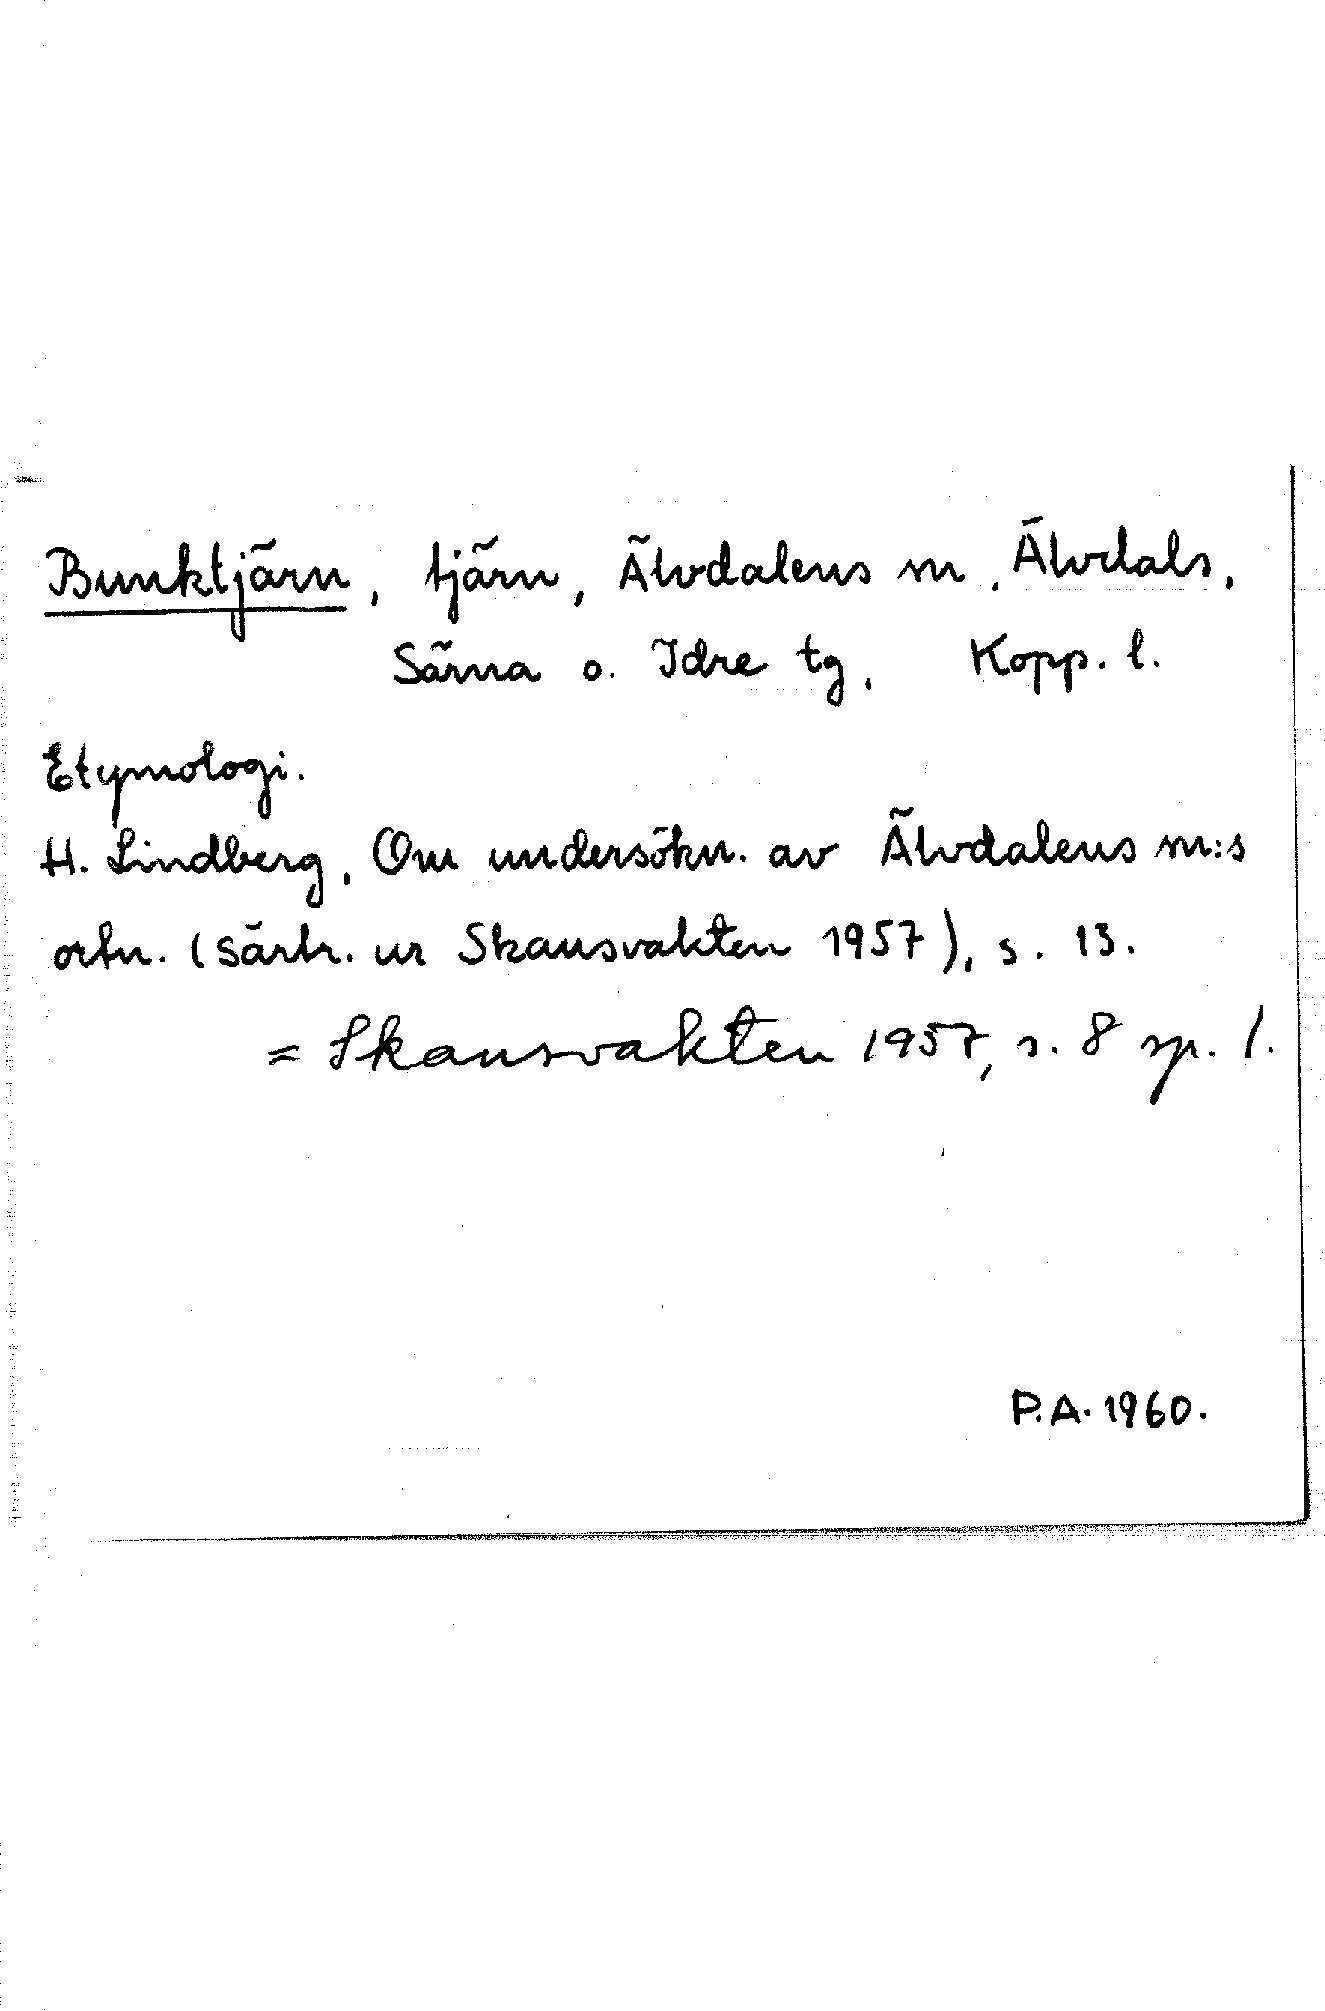 Bunktjärn, tjärn, Älvdalens m, Älvdals,
Särna o. Idre tg, Kopp. l.
Etymologi.
H. Lindberg, Om undersökn. av Älvdalens m:s
ortn. (särtr. ur Skansvakten 1957), s. 13.
= Skansvakten 1957, s. 8 sp. 1.
P.A. 1960.